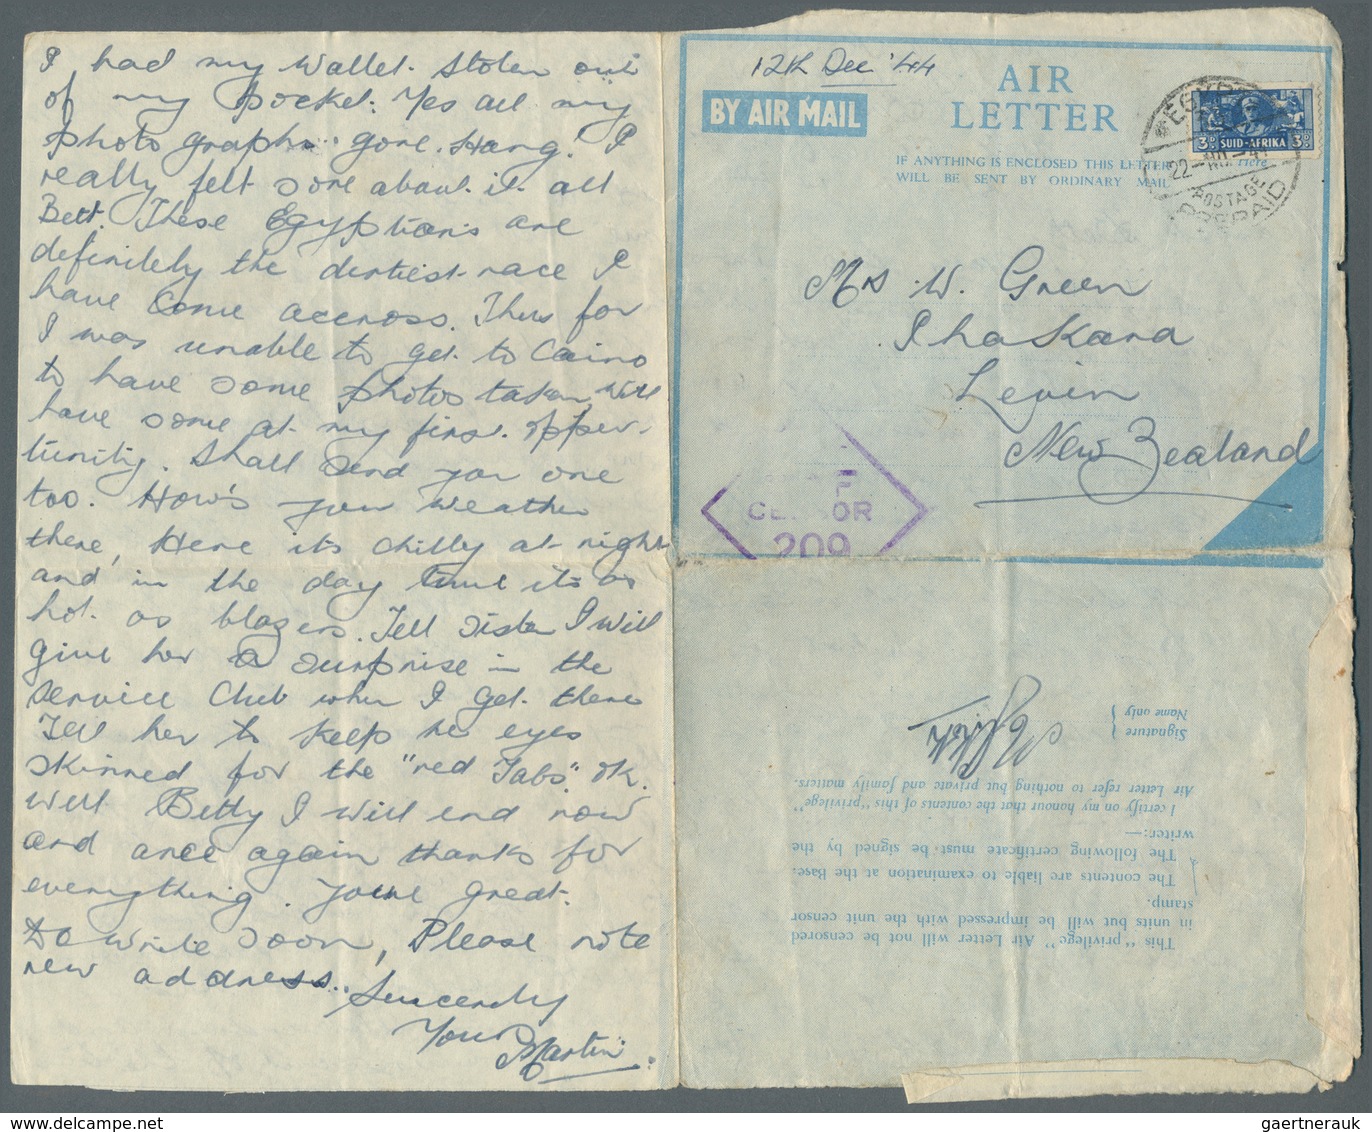 I had my Wallet stolen out
of my pocket: Yes all my
photo graphs... gone. Hang! I
really felt sore about it all
Bett. These Egyptians are
definitely the dirtiest race I
have come accross. Thus far
I was unable to get to Cairo
to have some photos taken, Will
have some at my first opper-
tunity. Shall send you one
too. How's your weather
there, Here its chilly at night
and in the day time its as
hot as blazers. Tell Sister I will
give her a surprise in the
service Club when I get there
Tell her to keep he eyes
skinned for the "red Tabs" ok.
Well Betty I will end now
and once again thanks for
everything. Youre great.
Do write soon, Please note
new address... Sincerely
Your
Martin.
12th Dec '44
AIR
LETTER
BY AIR MAIL
IF ANYTHING IS ENCLOSED THIS LETTER
WILL BE SENT BY ORDINARY MAIL
Here
3D SUID-AFRIKA 3D
EGYPT
22-
POSTAGE
PREPAID
Mrs W. Green
Levin
New Zealand
CENSOR
209
This "privilege" Air Letter will not be censored
in units but will be impressed with the unit censor
stamp.
The contents are liable to examination at the Base.
The following certificate must be signed by the
writer:—
I certify on my honour that the contents of this "privilege"
Air Letter refer to nothing but private and family matters.
Signature
Name only
gaertnerauk